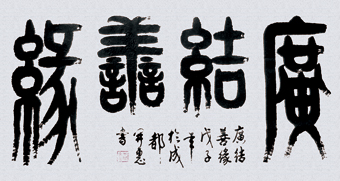 廣結善緣
廣結
善緣
戊子
年
於成
都
開惠
書